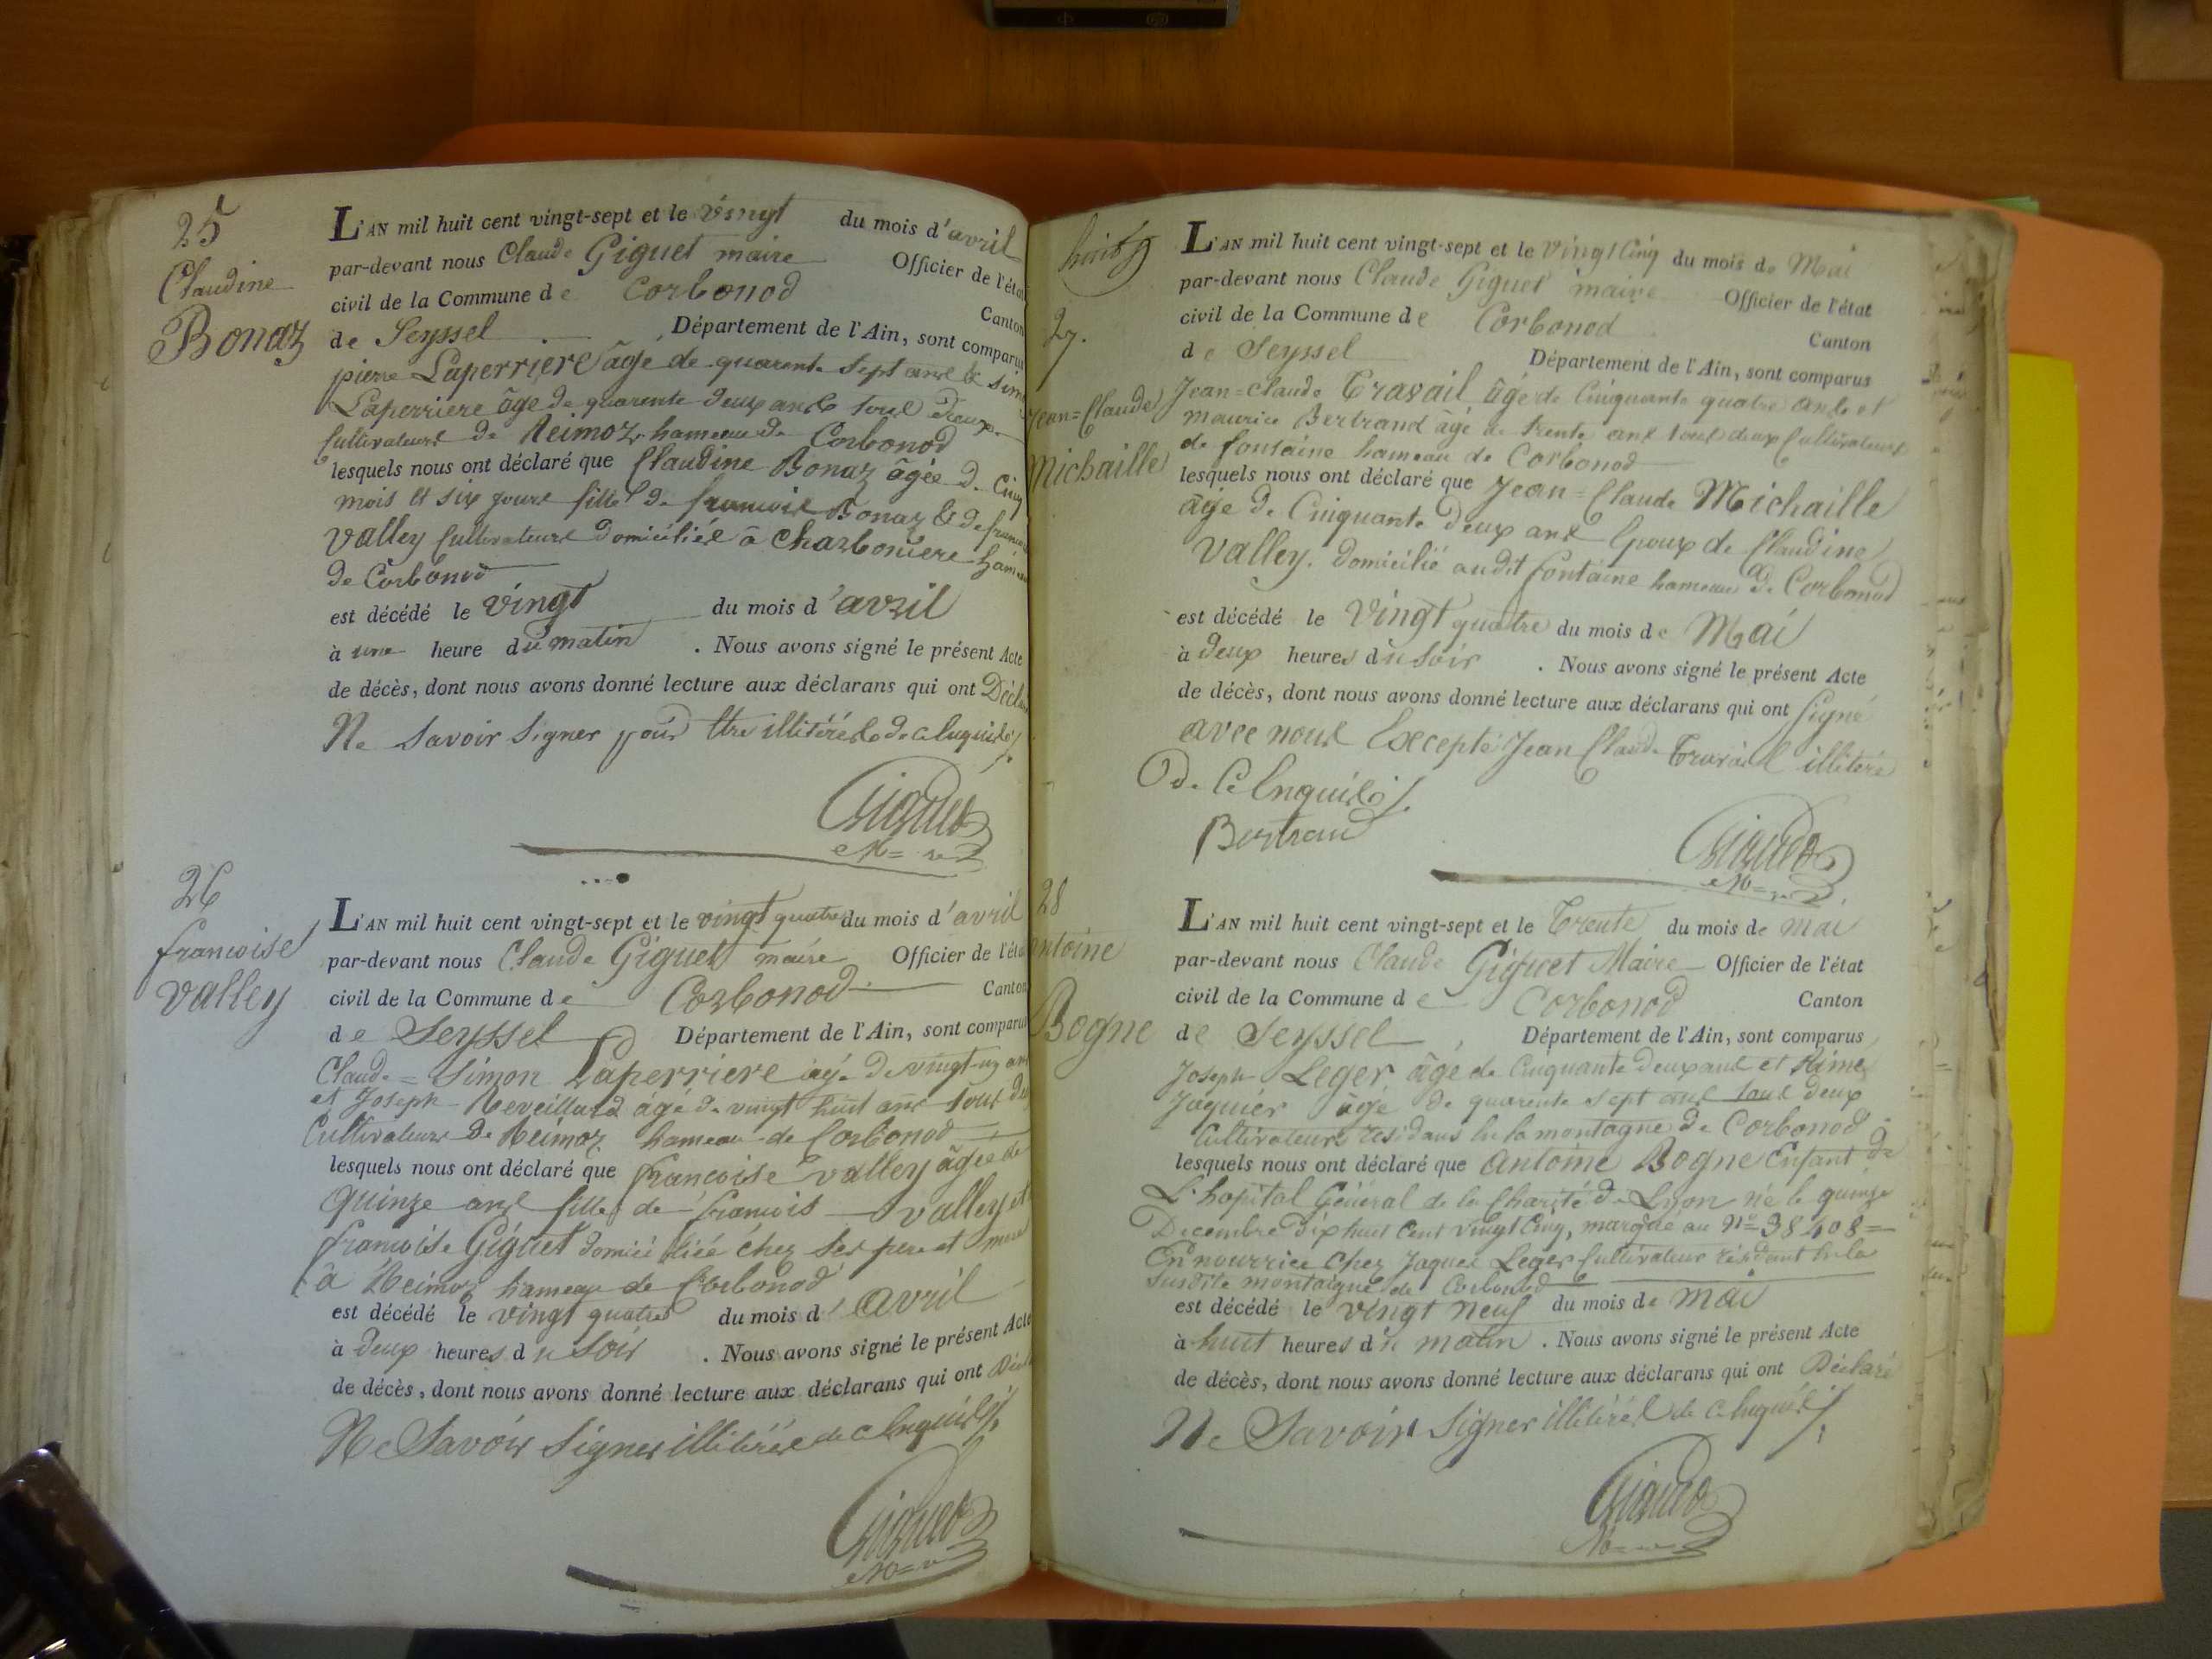 25
Claudine
Bonaz
L'AN mil huit cent vingt-sept et le vingt du mois d'avril
par-devant nous Claude Giguet maire Officier de l'état
civil de la Commune de Corbonod Canton
de Seyssel Département de l'Ain, sont comparus
pierre Laperriere âgé de quarente sept ans &
Laperriere âgé de quarente deux ans tous deux
Cultivateurs de Reimoz hameau de Corbonod
lesquels nous ont déclaré que Claudine Bonaz âgée de Cinq
mois et six jours fille de francois Bonaz & de
Valley Cultivateurs domiciliés à Charboniere
de Corbonod
est décédé le vingt du mois d'avril
à une heure du matin . Nous avons signé le présent Acte
de décès, dont nous avons donné lecture aux déclarans qui ont
Ne Savoir Signer pour être illitérés de ce Enquis
Giguet
26
francoise
valley
L'AN mil huit cent vingt-sept et le vingt quatre du mois d'avril
par-devant nous Claude Giguet maire Officier de l'état
civil de la Commune de Corbonod Canton
de Seyssel Département de l'Ain, sont comparus
Claude=Simon Laperriere âgé de vingt-un ans
et Joseph Reveillard âgé de vingt huit ans tous deux
Cultivateurs de Reimoz hameau de Corbonod
lesquels nous ont déclaré que francoise valley âgée de
quinze ans fille de francois valley et
francoise Giguet domiciliée chez ses pere et mere
à Reimoz hameau de Corbonod
est décédé le vingt quatre du mois d'avril
à deux heures du soir . Nous avons signé le présent Acte
de décès, dont nous avons donné lecture aux déclarans qui ont
Ne Savoir Signer illitérés de ce Enquis
Giguet
27.
Jean=Claude
Michaille
L'AN mil huit cent vingt-sept et le vingt Cinq du mois de Mai
par-devant nous Claude Giguet maire Officier de l'état
civil de la Commune de Corbonod Canton
de Seyssel Département de l'Ain, sont comparus
Jean=Claude Travail âgé de Cinquante quatre ans et
maurice Bertrand âgé de trente ans tous deux Cultivateurs
de fontaine hameau de Corbonod
lesquels nous ont déclaré que Jean=Claude Michaille
âgé de Cinquante deux ans Epoux de Claudine
Valley. domicilié audit fontaine hameau de Corbonod
est décédé le vingt quatre du mois de Mai
à deux heures du soir . Nous avons signé le présent Acte
de décès, dont nous avons donné lecture aux déclarans qui ont Signé
avec nous Excepté Jean Claude Travail illitéré
de Ce Enquis
Bertrand
Giguet
28
ntoine
Bogne
L'AN mil huit cent vingt-sept et le Trente du mois de Mai
par-devant nous Claude Giguet Maire Officier de l'état
civil de la Commune de Corbonod Canton
de Seyssel Département de l'Ain, sont comparus
Joseph Leger âgé de Cinquante deux ans et Aimé
Jaquier âgé de quarente sept ans tous deux
Cultivateurs résidans sur la montagne de Corbonod
lesquels nous ont déclaré que Antoine Bogne Enfant de
L'hopital Général de la Charité de Lyon né le quinze
Decembre dix huit Cent vingt Cinq, marqué au N° 38408=
En nourrice Chez Jaques Leger Cultivateur résidant sur la
susdite montaigne de Corbonod
est décédé le vingt neuf du mois de mai
à huit heures du matin . Nous avons signé le présent Acte
de décès, dont nous avons donné lecture aux déclarans qui ont Déclaré
Ne Savoir Signer illitérés de ce Enquis
Giguet